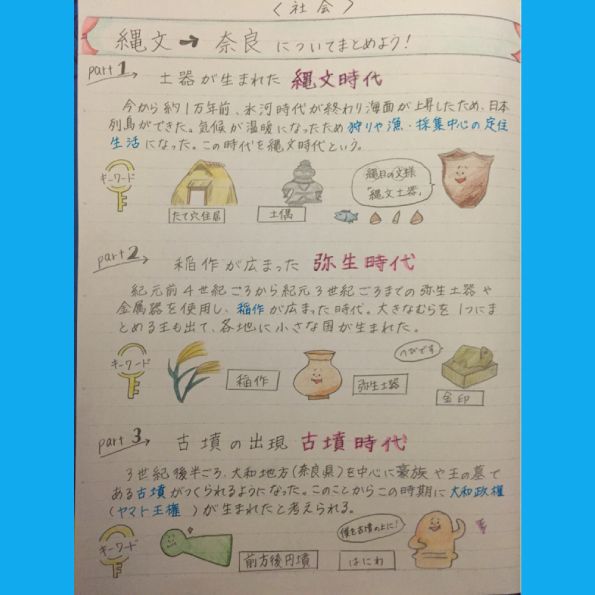 〈社会〉
縄文→奈良についてまとめよう!
part1
土器が生まれた 縄文時代
今から約1万年前、氷河時代が終わり海面が上昇したため、日本
列島ができた。気候が温暖になったため狩りや漁・採集中心の定住
生活になった。この時代を縄文時代という。
キーワード
たて穴住居
土偶
縄目の文様
「縄文土器」
part2
稲作が広まった 弥生時代
紀元前4世紀ごろから紀元3世紀ごろまでの弥生土器や
金属器を使用し、稲作が広まった時代。大きなむらを1つにま
とめる王も出て、各地に小さな国が生まれた。
キーワード
稲作
弥生土器
へびです
金印
part3
古墳の出現 古墳時代
3世紀後半ごろ、大和地方(奈良県)を中心に豪族や王の墓で
ある古墳がつくられるようになった。このことからこの時期に大和政権
(ヤマト王権)が生まれたと考えられる。
キーワード
前方後円墳
僕を古墳の上に!
はにわ